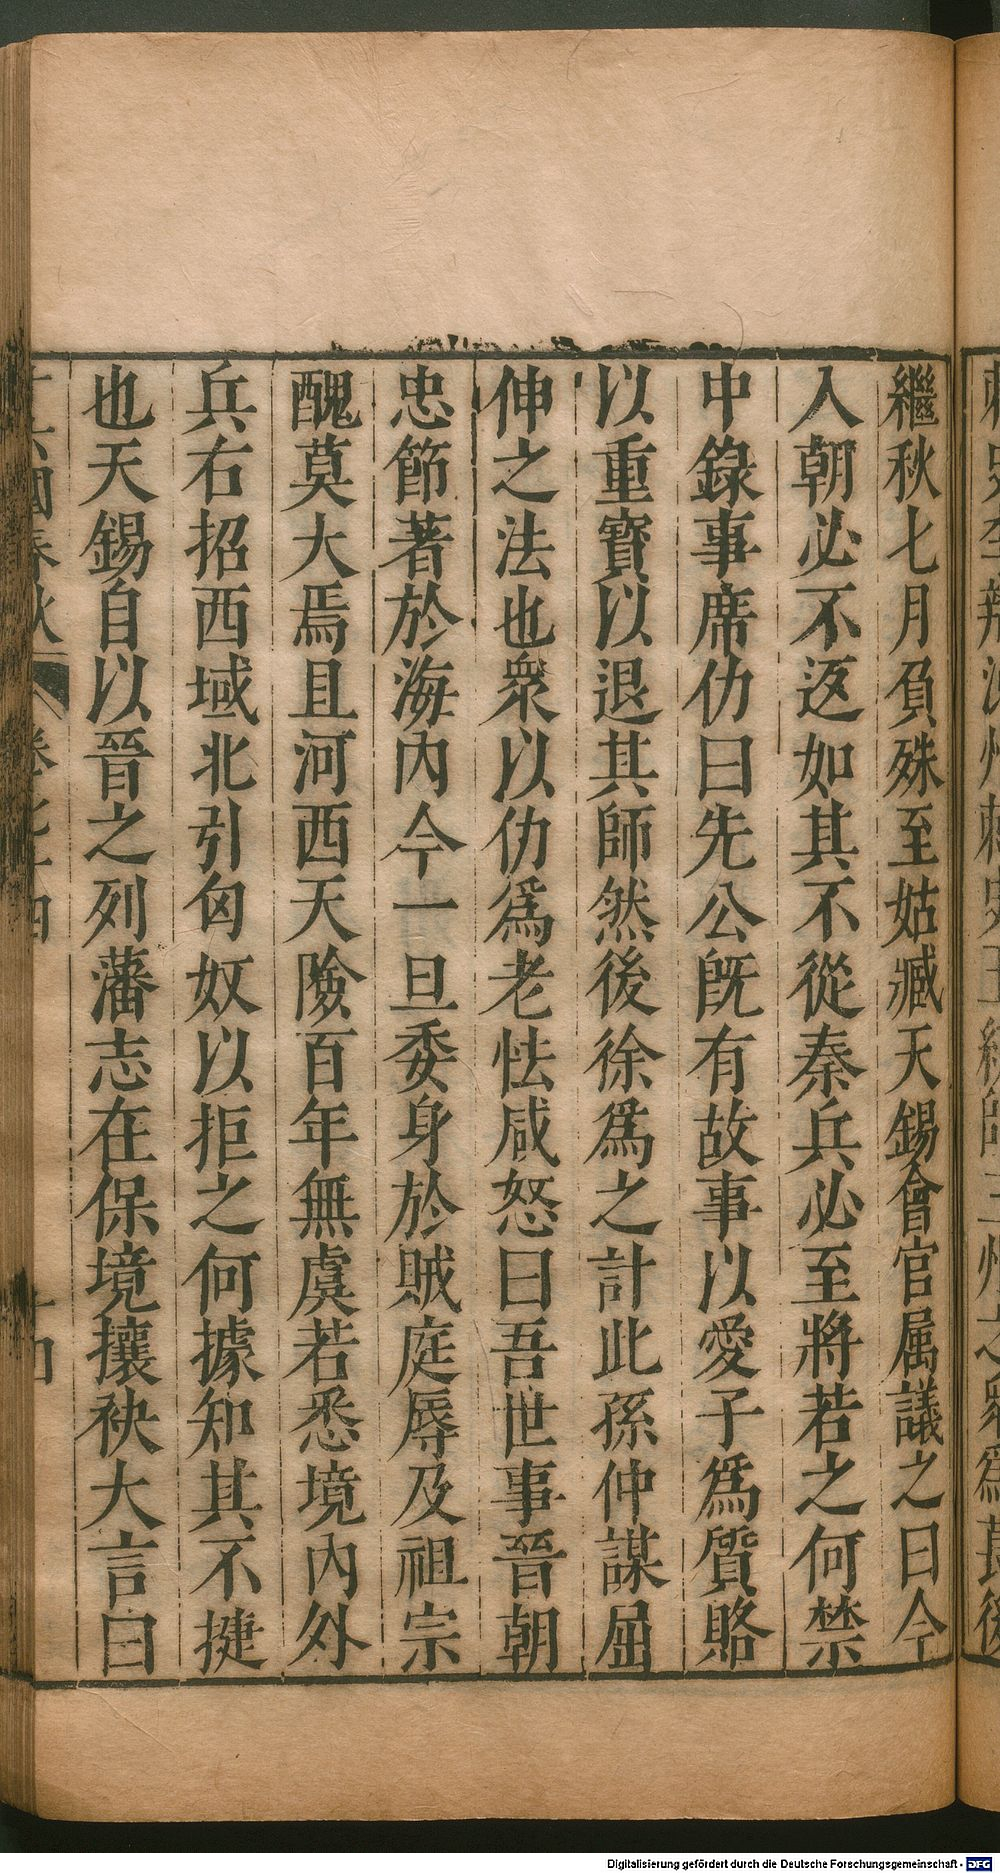 繼秋七月負殊至姑臧天錫會官属議之曰今
入朝必不返如其不從秦兵必至將若之何禁
中錄事席仂曰先公旣有故事以愛子爲質賂
以重寳以退其師然後徐爲之計此孫仲謀屈
伸之法也衆以仂爲老怯咸怒曰吾世事晉朝
忠節著於海內今一旦委身於賊庭辱及祖宗
醜莫大焉且河西天險百年無虞若悉境內外
兵右招西域北引匈奴以拒之何據知其不捷
也天錫自以晉之列藩志在保境攘袂大言曰
國春秋 卷七十四
Digitalisierung gefördert durch die Deutsche Forschungsgemeinschaft - DFG